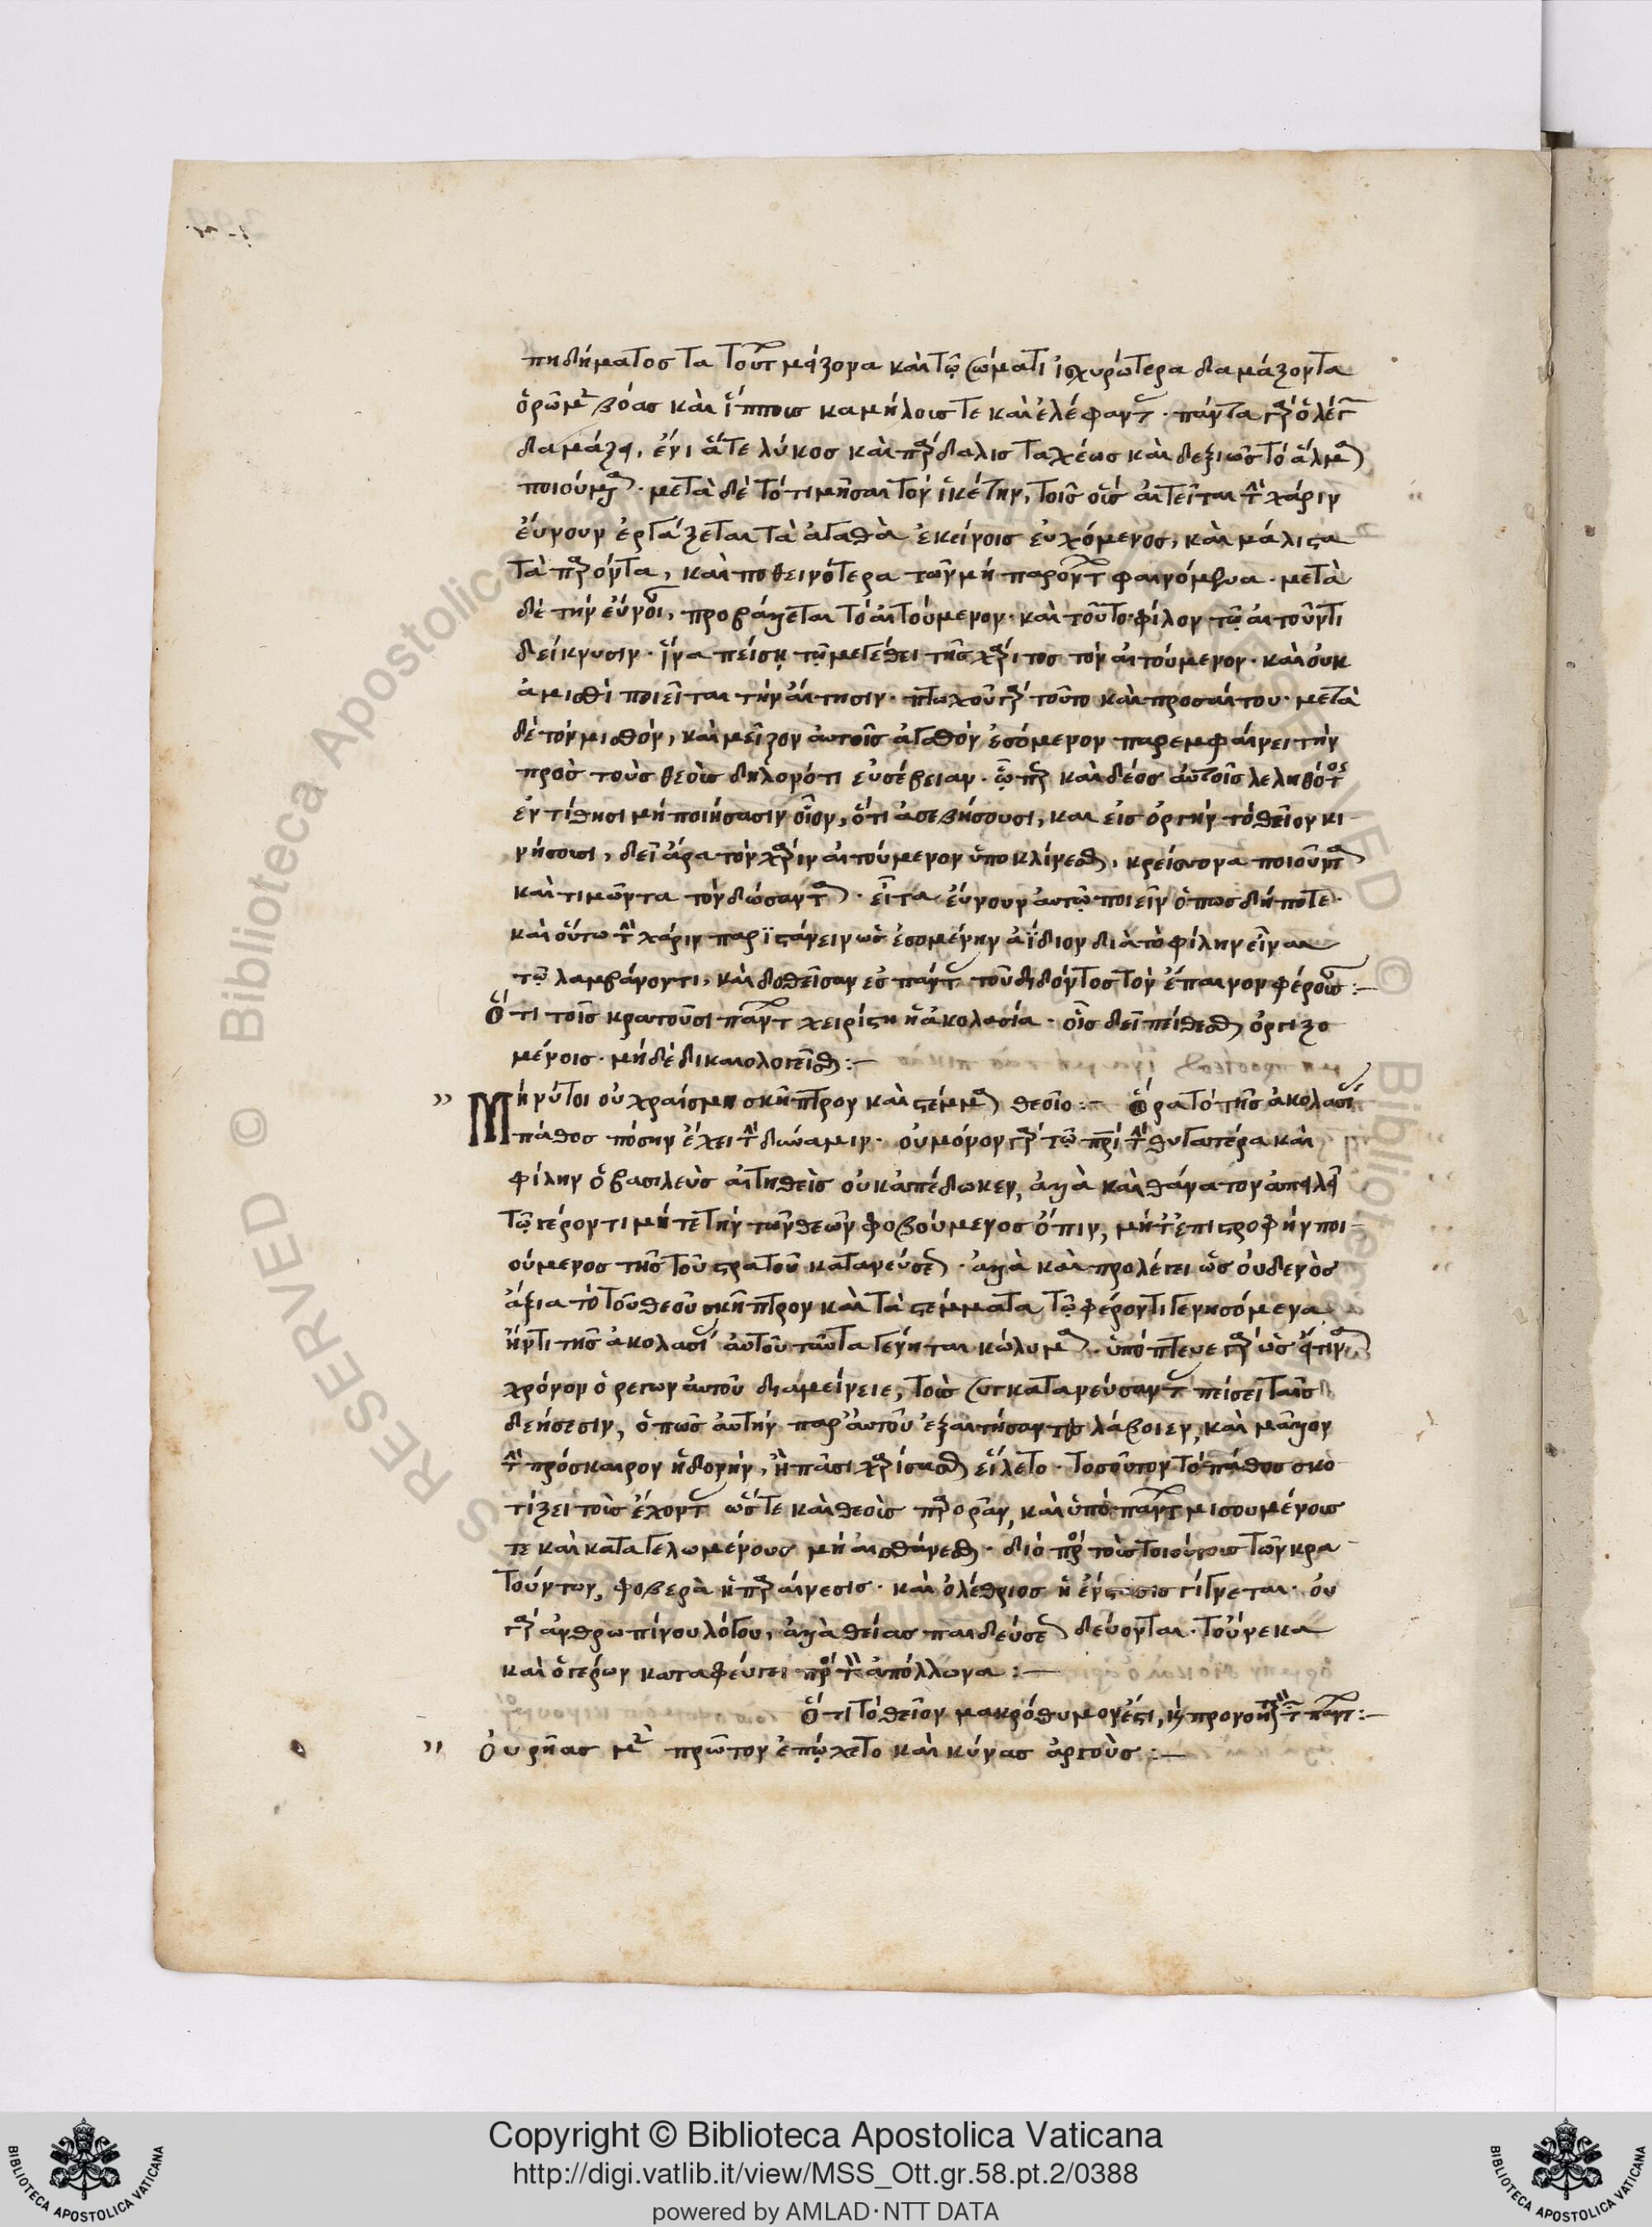 πηδήματος τα τούτ μείζονα καὶ τῶ σώματι ἰσχυρώτερα δαμάζοντα
ὁρῶμ βόας καὶ ἵππους καμήλους τε καὶ ἐλέφαντ. πάντα γὰρ ὁ λέγ
δαμάζει, ἔνι ἅτε λύκος καὶ πάρδαλις ταχέως καὶ δεξιῶς τὸ ἅλμα
ποιούμ. μετὰ δὲ τὸ τιμῆσαι τὸν ἱκέτην, τοῖς οἷς αἰτεῖται τὴν χάριν
εὔνουν ἐργάζεται τὰ ἀγαθὰ ἐκείνοις εὐχόμενος, καὶ μάλιστα
τὰ παρόντα, καὶ ποθεινότερα τῶν μὴ παρόντ φαινόμενα. μετὰ
δὲ τὴν εὔνοι, προβάλλεται τὸ αἰτούμενον. καὶ τοῦτο φίλον τῶ αἰτοῦντι
δείκνυσιν. ἵνα πείση τῶ μεγέθει τῆς χάριτος τὸν αἰτούμενον. καὶ οὐκ
ἀμισθὶ ποιεῖται τὴν αἴτησιν. πτωχοῦ γὰρ τοῦτο καὶ προσαίτου. μετὰ
δὲ τὸν μισθὸν, καὶ μεῖζον αὐτοῖς ἀγαθὸν ἐσόμενον παρεμφαίνει τὴν
πρὸς τοὺς θεοὺς δηλονότι εὐσέβειαν. ὧπερ καὶ δέος αὐτοῖς λεληθότος
ἐντίθησι μὴ ποιήσασιν οἷον, ὅτι ἀσεβήσουσι, και εἰς ὀργὴν τὸ θεῖον κι-
νήσουσι, δεῖ ἄρα τὸν χάριν αἰτούμενον ὑποκλίνεσθ, κρείσσονα ποιοῦντα
καὶ τιμῶντα τὸν δώσαντα. εἶτα εὔνουν αὐτῶ ποιεῖν ὅπως δήποτε.
καὶ οὕτω τὴν χάριν παριστάνειν ὡς ἐσομένην ἀΐδιον διὰ τὸ φίλην εἶναι
τῶ λαμβάνοντι, καὶ δοθεῖσαν ἐς πάντ τοῦ διδόντος τὸν ἔπαινον φέρουσ:—
Ὅτι τοῖς κρατοῦσι πάντ χειρίστη ἡ ἀκολασία. οἷς δεῖ πείθεσθ ὀργιζο
μένοις. μὴ δὲ δικαιολογεῖσθ:—
" Μή νύ τοι οὐ χραίσμη σκῆπτρον καὶ στέμμα θεοῖο:— Ὅρα τὸ τῆς ἀκολασί
πάθος πόσην ἔχει τὴν δύναμιν. οὐ μόνον γὰρ τῶ πατρὶ τὴν θυγατέρα καὶ
φίλην ὁ βασιλεὺς αἰτηθεὶς οὐκ ἀπέδωκεν, ἀλλὰ καὶ θάνατον ἀπειλεῖ
τῶ γέροντι μήτε τὴν τῶν θεῶν φοβούμενος ὄπιν, μήτ ἐπιστροφὴν ποι-
ούμενος τῆς τοῦ στρατοῦ κατανεύσε. ἀλλὰ καὶ προλέγει ὡς οὐδενὸς
ἄξια τὸ τοῦ θεοῦ σκῆπτρον καὶ τὰ στέμματα τῶ φέροντι γενησόμενα
ἤν τι τῆς ἀκολασί αὐτοῦ ταῦτα γένηται κώλυμα. ὑπόπτευε γὰρ ὡς εἴ τινα
χρόνον ὁ γέρων αὐτοῦ διαμείνειε, τοὺς συγκατανεύσαντ πείσει ταῖς
δεήσεσιν, ὅπως αὐτὴν παρ' αὐτοῦ ἐξαιτήσαντες λάβοιεν, καὶ μᾶλλον
τὴν πρόσκαιρον ἡδονὴν, ἢ πᾶσι χαρίσασθ εἵλετο. τοσοῦτον τὸ πάθος σκο
τίζει τοὺς ἔχοντ ὥστε καὶ θεοὺς παρορᾶν, καὶ ὑπὸ πάντ μισουμένους
τε καὶ καταγελωμένους μὴ αἰσθάνεσθ. διὸ πρὸς τοὺς τοιούτους τῶν κρα
τούντων, φοβερὰ ἡ παραίνεσις. καὶ ὀλέθριος ἡ ἔνστασις γίγνεται. οὐ
γὰρ ἀνθρωπίνου λόγου, ἀλλὰ θείας παιδεύσε δεύονται. τοὔνεκα
καὶ ὁ γέρων καταφεύγει πρὸς τὸν ἀπόλλωνα:—
Ὅτι τὸ θεῖον μακρόθυμον ἐστι, κ προνοη τ πάντ:—
" Οὐρῆας μὲν πρῶτον ἐπώχετο καὶ κύνας ἀργούς:—
Copyright © Biblioteca Apostolica Vaticana
http://digi.vatlib.it/view/MSS_Ott.gr.58.pt.2/0388
powered by AMLAD·NTT DATA
BIBLIOTECA APOSTOLICA VATICANA
BIBLIOTECA APOSTOLICA VATICANA